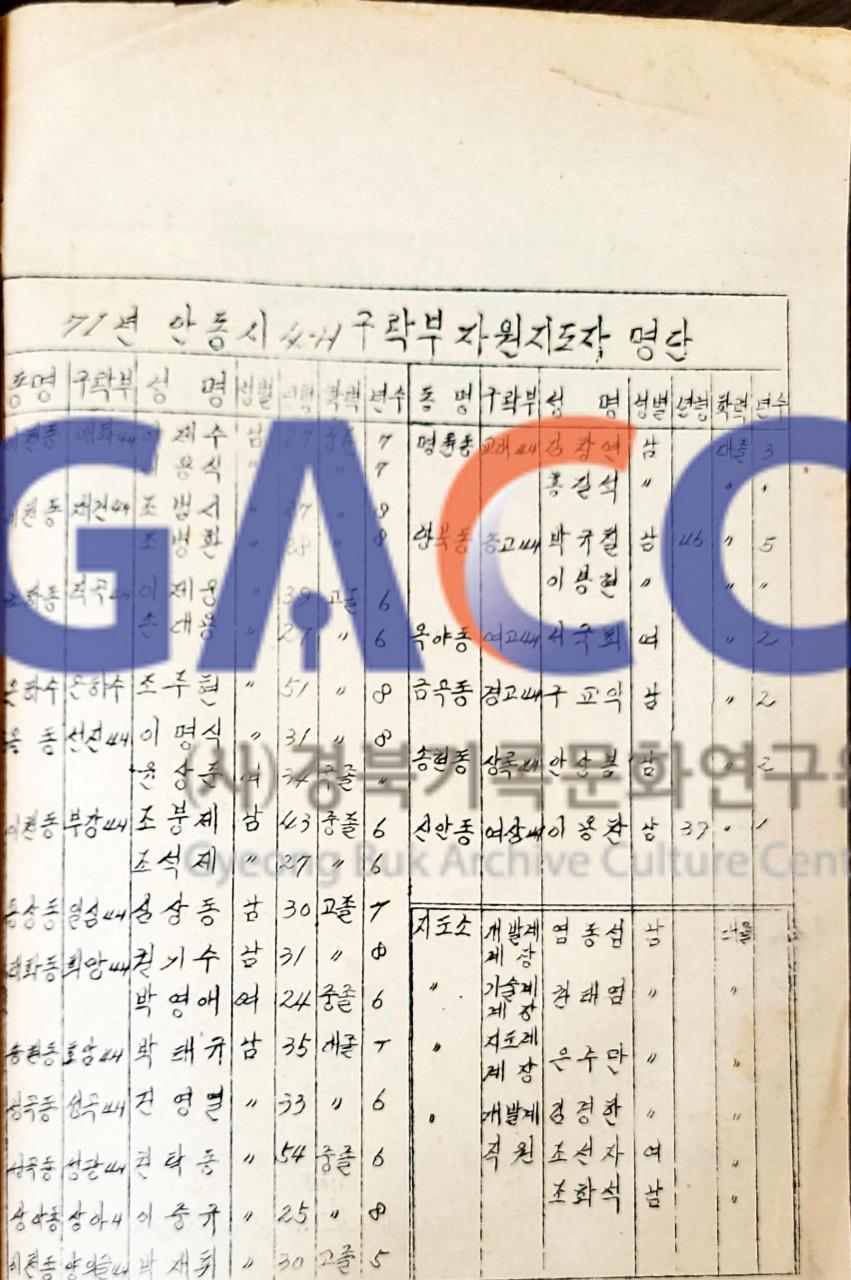 71년 안동시 4-H 구락부 자원지도자 명단
동명 구락부 성 명 성별 년령 학력 년수
이제수 남 27 중졸 7
용식 〃 〃 7
조범서 〃 27 〃 8
조병환 〃 28 〃 8
이제웅 〃 39 고졸 6
손대용 〃 27 〃 6
은하수 은하수 조주현 〃 51 〃 8
동 선진4H 이명식 〃 31 〃 8
윤상준 여 34 중졸 〃
이천동 부장4H 조붕제 남 43 중졸 6
조석제 〃 27 〃 6
상동 일심4H 상동 남 30 고졸 7
화동 희망4H 권기수 남 31 〃 8
박영애 여 24 중졸 6
송현동 호암4H 박태규 남 35 대졸 7
성곡동 성곡4H 영열 〃 33 〃 6
성곡동 탁동 〃 54 중졸 6
상아동 상아4 이중규 〃 25 〃 8
이천동 박재휘 〃 30 고졸 5
동명 구락부 성 명 성별 년령 학력 년수
명륜동 교대4H 김창연 남 대졸 3
홍길석 〃 〃 〃
당북동 중고4H 박규철 남 46 〃 5
이봉현 〃 〃 〃
옥야동 여고4H 서국희 여 〃 2
금곡동 경고4H 구교익 남 〃 2
송현동 상록4H 안상봉 남 〃 2
신안동 여상4H 이용찬 남 37 〃 1
지도소 개발계 염동섭 남 대졸
계장
〃 기술계 권태업 〃 〃
계장
〃 지도계 은주만 〃 〃
계장
〃 개발계 김경한 〃 〃
직원 조선자 여 〃
조화석 남 〃
GACC
(사)경북기록문화연구원
Gyeong Buk Archive Culture Cent